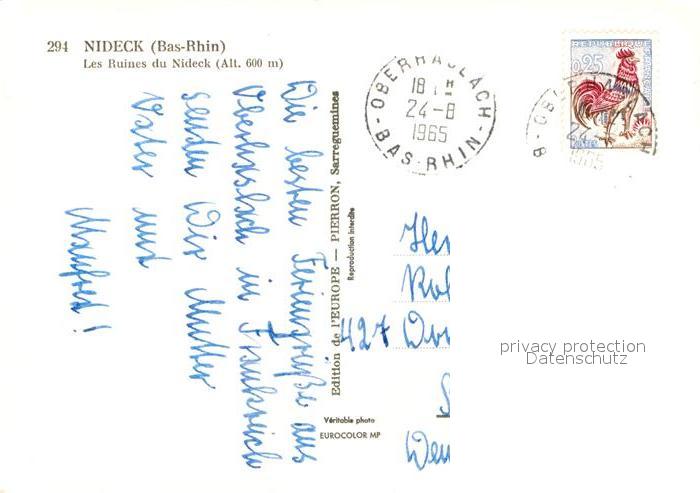 294 NIDECK (Bas-Rhin)
Les Ruines du Nideck (Alt. 600 m)
Die besten Feriengrüße aus
Oberhaslach in Frankreich
senden Dir Mutter
Vater und
Manfred!
Edition de l'EUROPE — PIERRON, Sarreguemines
Reproduction interdite
Véritable photo
EUROCOLOR MP
OBERHASLACH
18 H
24-8
1965
BAS-RHIN
REPUBLIQUE FRANÇAISE
0,25
POSTES
24-8
1965
427
privacy protection
Datenschutz